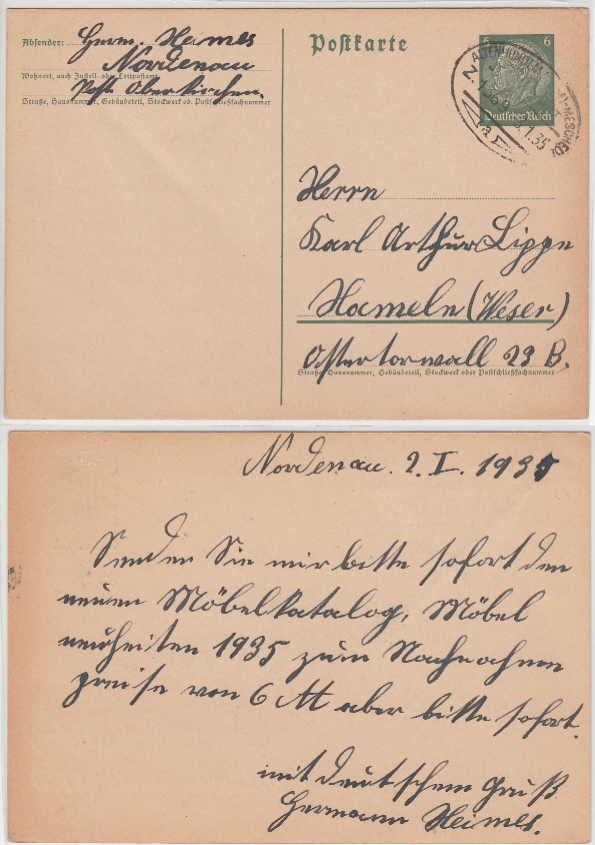 Absender: Herm. Heimes
Nordenau
Wohnort, auch Zustell- oder Leitpostamt
Post Oberkirchen.
Straße, Hausnummer, Gebäudeteil, Stockwerk od. Postschließfachnummer
Postkarte
6 6
Deutsches Reich
ALTENHUNDEM
MESCHEDE
1.35
Herrn
Karl Arthur Lippe
Hameln (Weser)
Ostertorwall 23 B.
Straße, Hausnummer, Gebäudeteil, Stockwerk oder Postschließfachnummer
Nordenau. 2. I. 1935
Senden Sie mir bitte sofort den
neuen Möbelkatalog, Möbel
neuheiten 1935 zum Nachnahmen
preise von 6 M aber bitte sofort.
mit deutschem Gruß
Hermann Heimes.